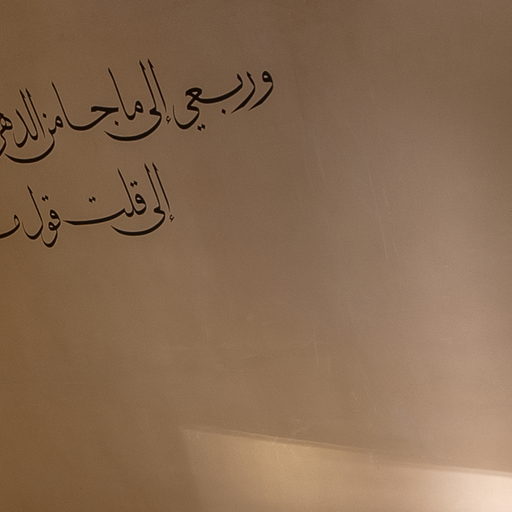 وربعي إلى ما جا من الدهر
إلى قلت قول